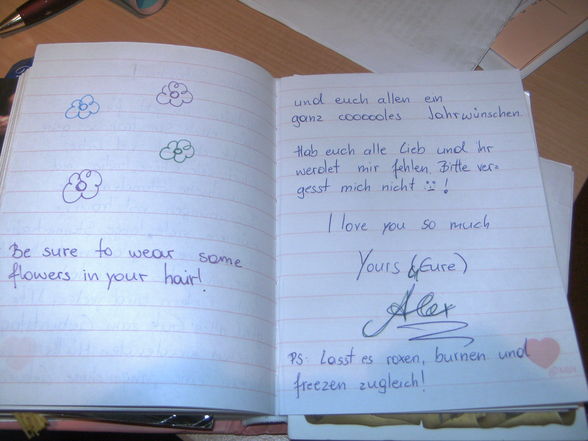 Be sure to wear some
flowers in your hair!
und euch allen ein
ganz cooooooles Jahrwünschen.
Hab euch alle lieb und ihr
werdet mir fehlen. Bitte ver=
gesst mich nicht !
I love you so much
Yours (Eure)
Alex
PS: Lasst es roxen, burnen und
freezen zugleich!